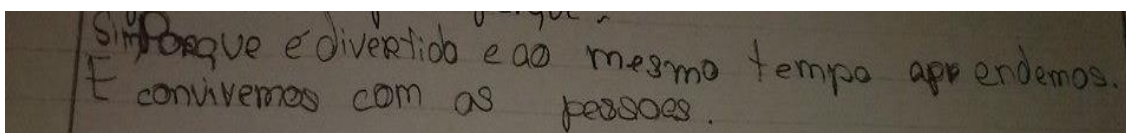 Sim Porque é divertido e ao mesmo tempo aprendemos.
E convivemos com as pessoas.